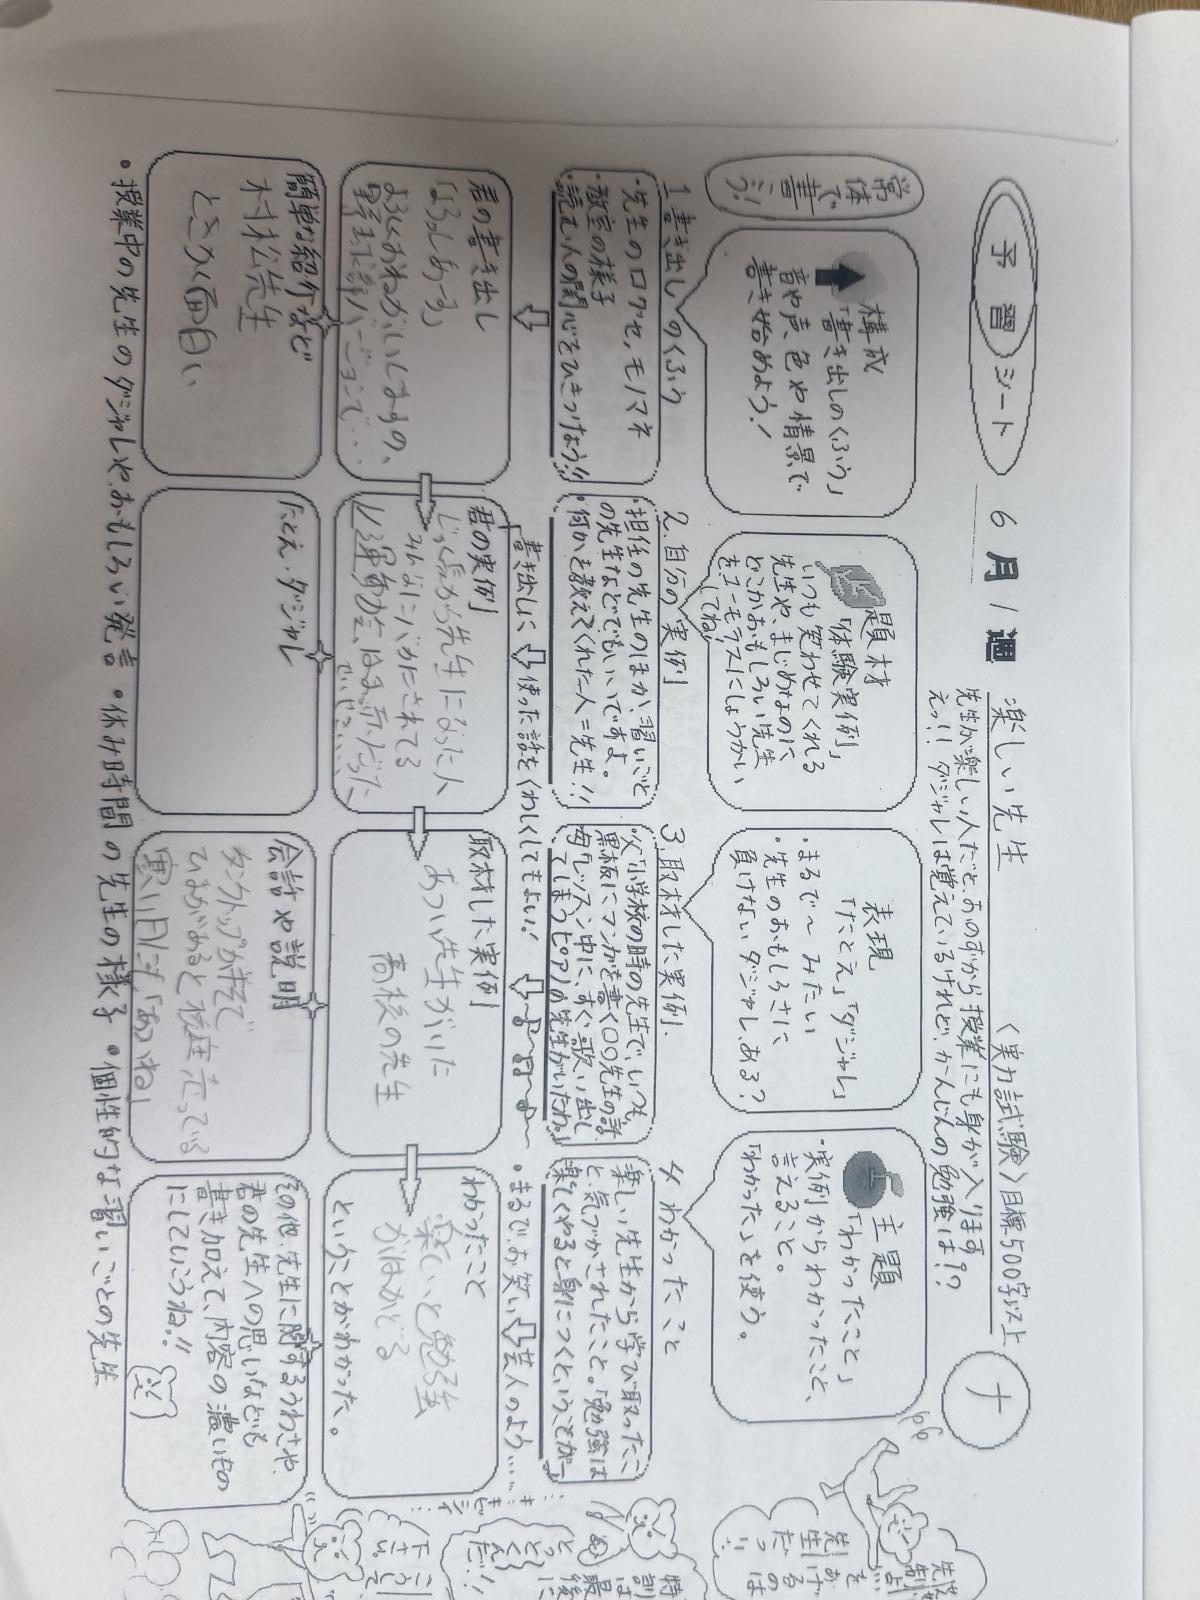 予習シート
6月1週
楽しい先生 〈実力試験〉目標500字以上
先生が楽しい人だと、おのずから授業にも身が入ります。
えっ!! ダジャレは覚えているけれど、かんじんの勉強は??
ナ
常体で書こう!
構成
「書き出しのくふう」
音や声、色や情景で
書き始めよう!
題材
「体験実例」
いつも笑わせてくれる
先生や、まじめなのに
どこかおもしろい先生
をユーモラスにしょうかい
してね
表現
「たとえ」「ダジャレ」
・まるで〜みたい
・先生のおもしろさに
負けないダジャレ、ある?
主題
「わかったこと」
・実例からわかったこと、
言えること。
「わかった」を使う。
1 書き出しのくふう
・先生の口グセ、モノマネ
・教室の様子
・読む人の関心をひきつけよう!!
2. 自分の実例
・担任の先生のほか、習いごと
の先生などでもいいですよ。
・何かを教えてくれた人=先生!!
3. 取材した実例.
・父「小学校の時の先生で、いつも
黒板にマンガを書く〇〇先生の話
・母「レッスン中に、すぐ歌い出し
てしまうピアノの先生がいたわ。」
4. わかったこと
楽しい先生から学び取ったこ
と、気づかされたこと。「勉強は
楽しくやると身につくということが〜」
書き出しに使った話をくわしくしてもよい!
・まるで、お笑い芸人のよう……
君の書き出し
「よろしおーる」
よろしくおねがいしますの、
君の実例
みんなにバカにされてる
取材した実例
あつい先生がいた
高校の先生
わかったこと
楽しいと勉強
がはかどる
ということがわかった。
簡単な紹介など
村松先生
とにかく面白い
たとえ・ダジャレ
会話や説明
タンクトップが好きで
ひまがあると校庭走っている
寒い日にも「あついね」
その他、先生に関するうわさや、
君の先生への思いなども
書き加えて、内容の濃いもの
にしていこうね!!
・授業中の先生のダジャレや、おもしろい発言 ・休み時間の先生の様子 ・個性的な習いごとの先生